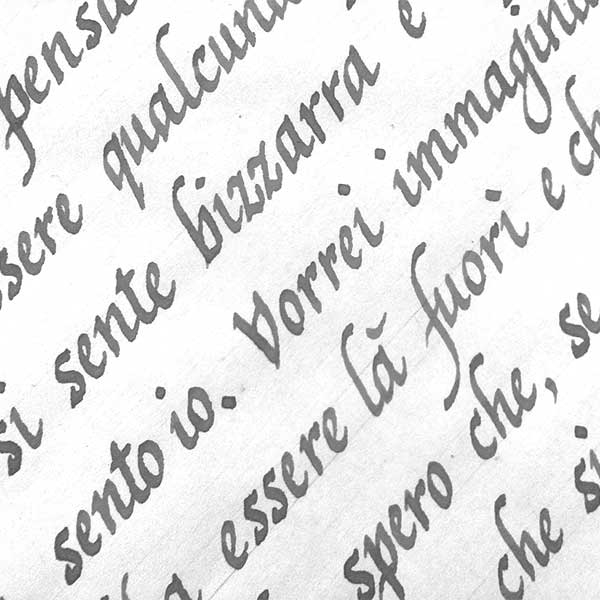 pensa
ssere qualcuna
si sente bizzarra e
sento io. Vorrei immagina
a essere lă fuori e ch
spero che, se
che si